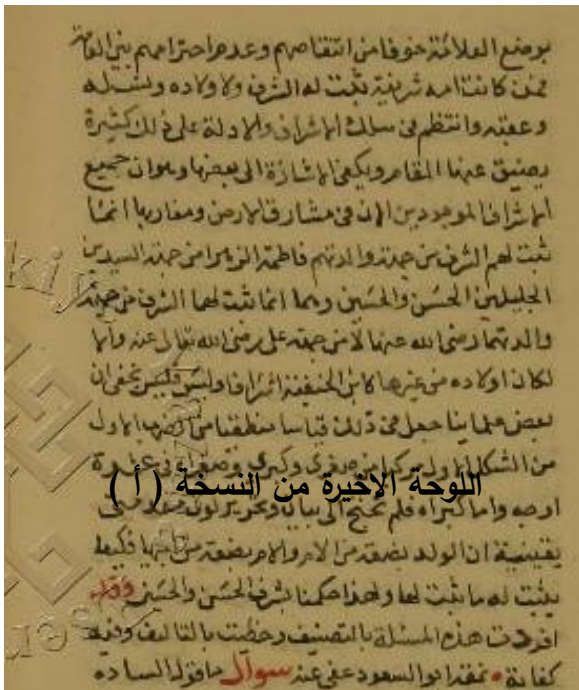 بوضع العلامة خوفا من انتقاصهم وعدم احترامهم بين العامة
فمن كانت امه شريفة ثبت له الشرف ولاولاده ونسله
وعقبه وانتظم في سلك الاشراف والادلة على ذلك كثيرة
يضيق عنها المقام ويكفي الاشارة الى بعضها وهو ان جميع
الاشراف الموجودين الان في مشارق الارض ومغاربها انما
ثبت لهم الشرف من جهة والدتهم فاطمة الزهرا من جهة السيدين
الجليلين الحسن والحسين وهما انما ثبت لهما الشرف من جهة
والدتهما رضى الله عنها لا من جهة على رضى الله تعالى عنه والا
لكان اولاده من غيرها كابن الحنفية اشرافا وليس فليس تخفى ان
بعض علماينا جعل في ذلك قياسا منطقيا من الاول
من الشكل الاول مركبا من صغرى وكبرى
اللوحة الاخيرة من النسخة ( أ )
اوجه واما كبراه فلم تحتج الى بيان وتحرير لكون
يقينية ان الولد بضعة من الام والام بضعة من فكيف
يثبت له ما ثبت لها ولهذا حكمنا بشرف الحسن والحسين وقد
افردت هذه المسئلة بالتصنيف وحظيت بالتاليف وفيه
كفاية نمقه ابو السعود عفى عنه سوال ما قول الساده